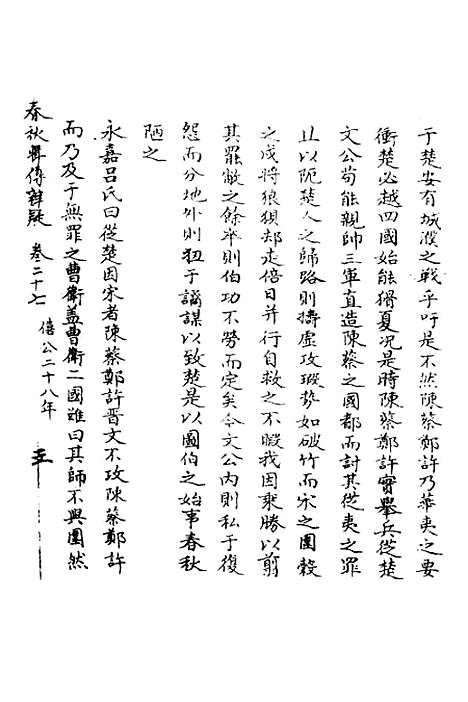 于楚安有城濮之戰乎吁是不然陳蔡鄭許乃華夷之要
衝楚必越四國始能猾夏況是時陳蔡鄭許實舉兵從楚
文公茍能親帥三軍直造陳蔡之國都而討其從夷之罪
且以阨楚人之歸路則擣虛攻瑕勢如破竹而宋之圍穀
之戍將狼狽却走倍日并行自救之不暇我因乘勝以翦
其罷敝之餘卒則伯功不勞而定矣今文公內則私于復
怨而分地外則狃于譎謀以致楚是以圖伯之始事春秋
陋之
永嘉呂氏曰從楚圍宋者陳蔡鄭許晋文不攻陳蔡鄭許
而乃及于無罪之曹衛蓋曹衛二國雖曰其師不與圍然
春秋輯傳辨疑 卷二十七 僖公二十八年 五